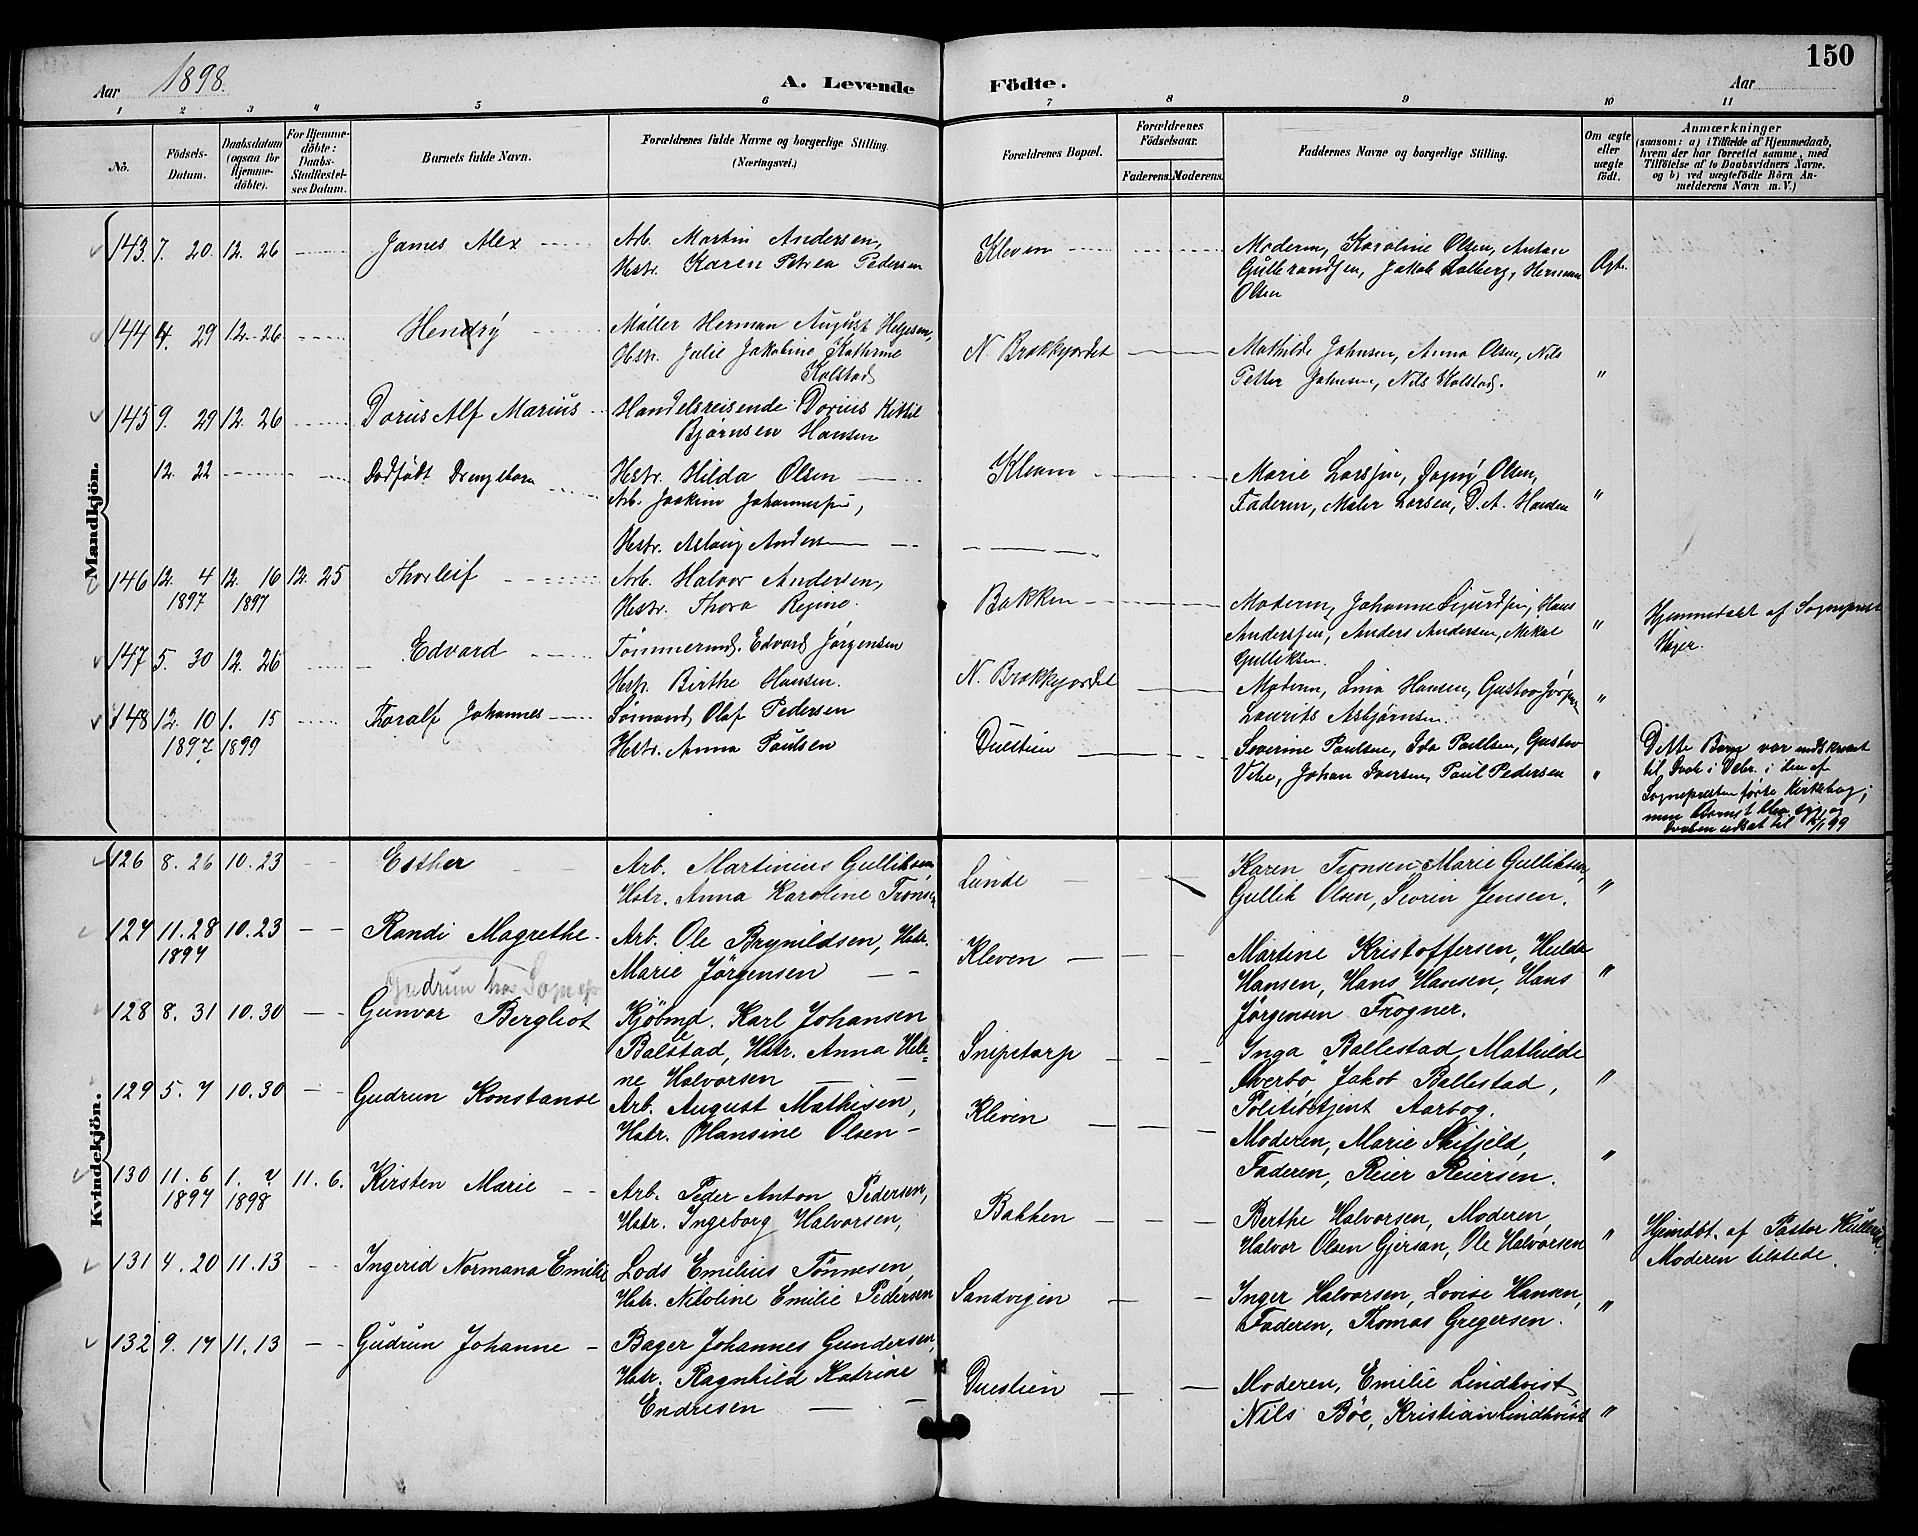 150
Aar 1898.
A. Levende Födte.
Aar
1 2 3 4 5 6 7 8 9 10 11
No.
Födsels-Datum.
Daabsdatum (ogsaa for Hjemme-döbte).
For Hjemme-döbte: Daabs-Stadfæstel-ses Datum.
Barnets fulde Navn.
Forældrenes fulde Navne og borgerlige Stilling. (Næringsvei.)
Forældrenes Bopæl.
Forældrenes Födselsaar.
Faderens. Moderens.
Faddernes Navne og borgerlige Stilling.
Om ægte eller uægte födt.
Anmærkninger
(saasom: a) i Tilfælde af Hjemmedaab, hvem der har forrettet samme, med Tilföielse af to Daabsvidners Navne. og b) ved uægtefödte Börn An-melderens Navn m. V.)
Mandkjön.
143. 7. 20 12. 26 James Alex
Arb. Martin Andersen,
Hstr. Karen Petrea Pedersen
Kleven
Moderen, Karoline Olsen, Anton
Gulbrandsen, Jakob Solberg, Herman
Olsen
Ægte.
144 4. 29 12. 26 Hendry
Möller Herman August Helgesen,
Hstr. Julie Jakobine Kathrine
Kolstad
N. Brækkjordet
Mathilde Johnsen, Anna Olsen, Nils
Petter Johnsen, Nils Kolstad.
"
145 9. 29 12. 26 Dorius Alf Marius
Handelsreisende Dorius Kittil
Bjørnsen Hansen
12. 22 Dødfødt Drengebarn
Hstr. Hilda Olsen
Kleven
Marie Larssen, Dagny Olsen,
Faderen, Maler Larsen, D. A. Hansen
"
Arb. Joakim Johannessen,
Hstr. Aslaug Andersen
146 12. 4 1897 12. 16 1897 12. 25 Thorleif
Arb. Halvor Andersen,
Hstr. Thora Regine.
Bakken
Moderen, Johanne Sigurdsen, Hans
Anderssen, Anders Andersen, Mikal
Gulliksen.
"
Hjemmedøbt af Sognepræst
147 5. 30 12. 26 Edvard
Tømmermd. Edvard Jørgensen
Hstr. Birthe Hansen.
N. Brækkjordet
Moderen, Lina Hansen, Gustav Jørgensen
Laurits Asbjørnsen.
"
148 12. 10 1897 1. 15 1899 Thoralf Johannes
Sømand Olaf Pedersen
Hstr. Anna Paulsen
Duestien
Severine Paulsen, Ida Paulsen, Gustav
Vebe, Johan Iversen, Paul Pedersen
"
Dette Barn var indskrevet
til Daab i Debr. i den af
Sognepresten førte Kirkebog;
men Barnet blev syg, og
Daaben udsat til 15/1 99
Kvindekjön.
126 8. 26 10. 23 Esther
Arb. Martinius Gulliksen,
Hstr. Anna Karoline Tronsen
Lunde
Karen Tronsen, Marie Gulliksen,
Gullik Olsen, Severin Jensen.
"
127 11. 28 1897 10. 23 Randi Magrethe
Arb. Ole Brynildsen, Hstr.
Marie Jörgensen
Kleven
Martine Kristoffersen, Hulda
Hansen, Hans Hansen, Hans
Jörgensen Frogner.
"
Gudrun har Sognepr
128 8. 31 10. 30 Gunvor Bergliot
Kjöbmd. Karl Johansen
Balstad, Hstr. Anna Hele-
ne Halvorsen
Snipetorp
Inga Ballestad, Mathilde
Averbo, Jakob Ballestad,
Politibetjent Aarbog.
"
129 5. 7 10. 30 Gudrun Konstanse
Arb. August Mathisen,
Hstr. Hansine Olsen
Kleven
Moderen, Marie Skifjeld,
Faderen, Reier Reiersen.
"
130 11. 6 1897 1. 2 1898 11. 6. Kirsten Marie
Arb. Peder Anton Pedersen,
Hstr. Ingeborg Halvorsen,
Bakken
Berthe Halvorsen, Moderen,
Halvor Olsen Gjersan, Ole Halvorsen
"
Hjemdbt. af Pastor
Moderen tilstede.
131 4. 20 11. 13 Ingerid Normana Emilie
Lods Emilius Tönnesen,
Hstr. Nikoline Emilie Pedersen
Sandvigen
Inger Halvorsen, Lovise Hansen,
Faderen, Thomas Gregersen.
"
132 9. 17 11. 13 Gudrun Johanne
Bager Johannes Gundersen,
Hstr. Ragnhild Katrine
Endresen
Duestien
Moderen, Emilie Lindkvist,
Nils Böe, Kristian Lindkvist
"